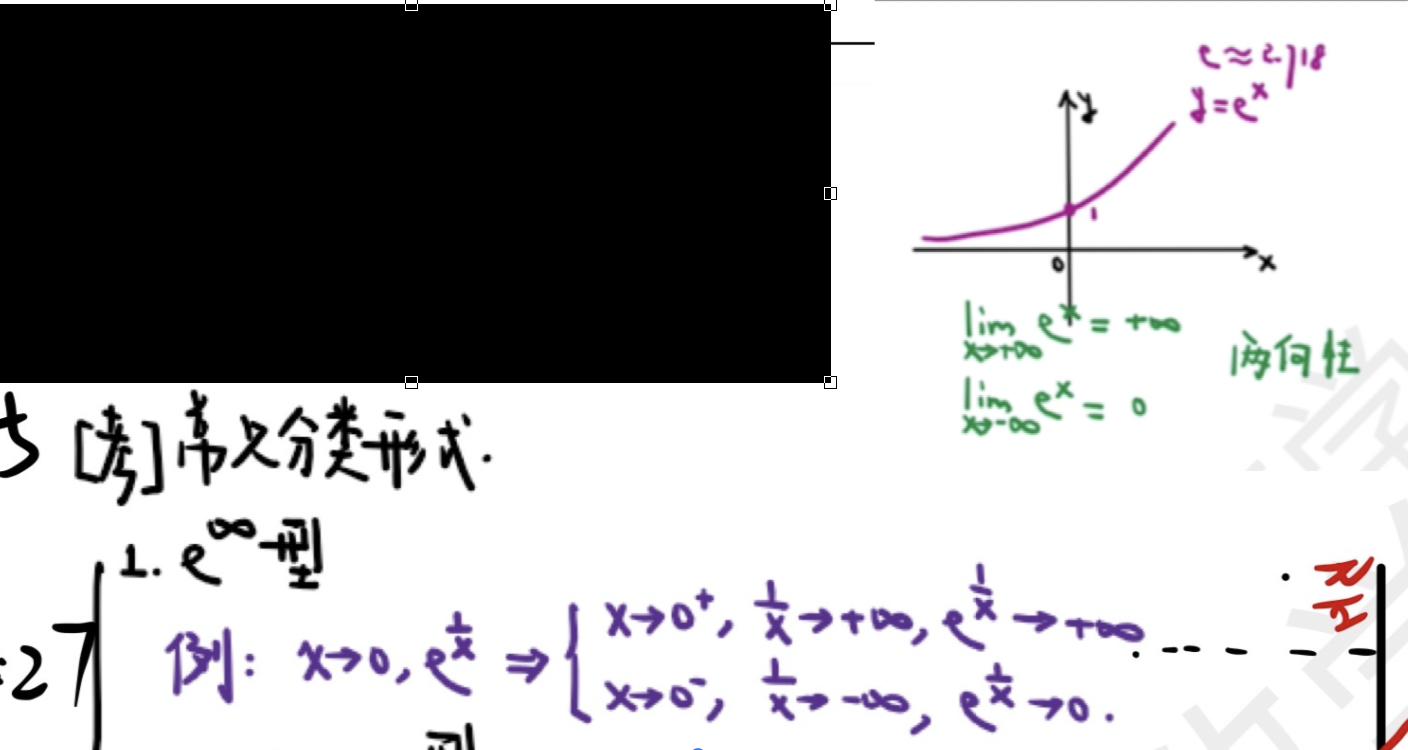 e≈2.718
y=e^x
y
1
0
x
lim x→+∞ e^x = +∞
两向性
lim x→-∞ e^x = 0
[考]常见分类形式.
1. e^∞型
例: x→0, e^{1/x} ⇒ { x→0⁺, 1/x→+∞, e^{1/x}→+∞
x→0⁻, 1/x→-∞, e^{1/x}→0.
27
型